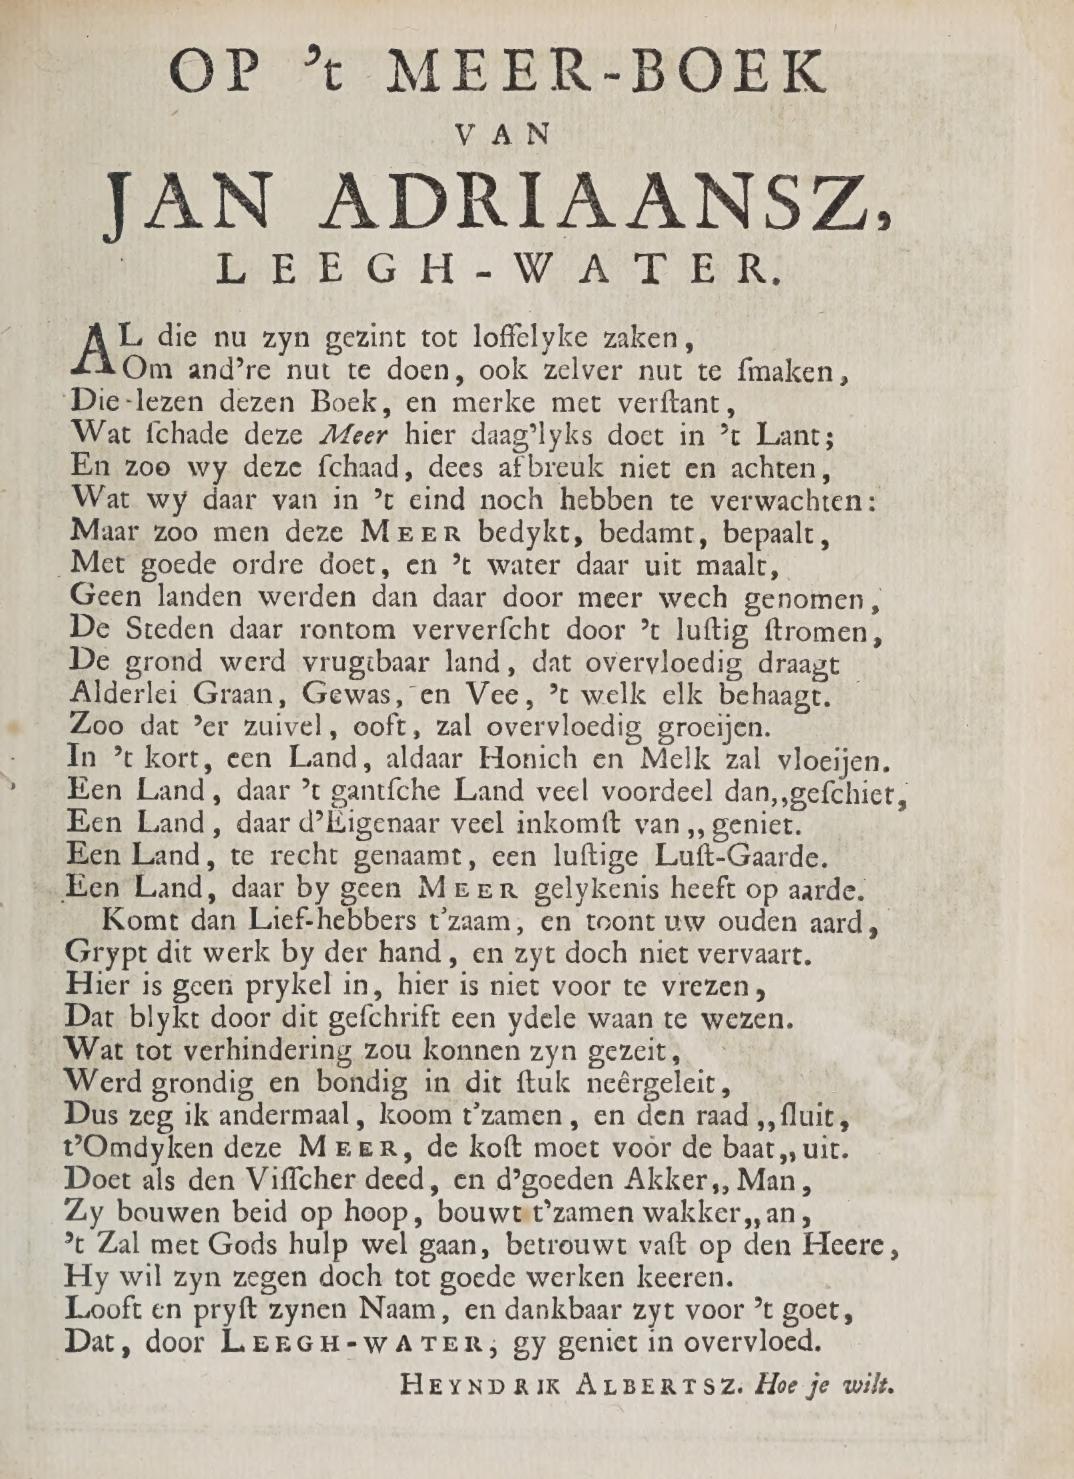 OP 't MEER-BOEK
VAN
JAN ADRIAANSZ,
LEEGH-WATER.
AL die nu zyn gezint tot loffelyke zaken,
Om and're nut te doen, ook zelver nut te ſmaken,
Die lezen dezen Boek, en merke met verſtant,
Wat ſchade deze Meer hier daag'lyks doet in 't Lant;
En zoo wy deze ſchaad, dees afbreuk niet en achten,
Wat wy daar van in 't eind noch hebben te verwachten:
Maar zoo men deze MEER bedykt, bedamt, bepaalt,
Met goede ordre doet, en 't water daar uit maalt,
Geen landen werden dan daar door meer wech genomen,
De Steden daar rontom ververſcht door 't luſtig ſtromen,
De grond werd vrugtbaar land, dat overvloedig draagt
Alderlei Graan, Gewas, en Vee, 't welk elk behaagt.
Zoo dat 'er zuivel, ooft, zal overvloedig groeijen.
In 't kort, een Land, aldaar Honich en Melk zal vloeijen.
Een Land, daar 't gantſche Land veel voordeel dan,,geſchiet,
Een Land, daar d'Eigenaar veel inkomſt van,,geniet.
Een Land, te recht genaamt, een luſtige Luſt-Gaarde.
Een Land, daar by geen MEER gelykenis heeft op aarde.
Komt dan Lief-hebbers t'zaam, en toont uw ouden aard,
Grypt dit werk by der hand, en zyt doch niet vervaart.
Hier is geen prykel in, hier is niet voor te vrezen,
Dat blykt door dit geſchrift een ydele waan te wezen.
Wat tot verhindering zou konnen zyn gezeit,
Werd grondig en bondig in dit ſtuk neêrgeleit,
Dus zeg ik andermaal, koom t'zamen, en den raad,,ſluit,
t'Omdyken deze MEER, de koſt moet voor de baat,,uit.
Doet als den Viſſcher deed, en d'goeden Akker,,Man,
Zy bouwen beid op hoop, bouwt t'zamen wakker,,an,
't Zal met Gods hulp wel gaan, betrouwt vaſt op den Heere,
Hy wil zyn zegen doch tot goede werken keeren.
Looft en pryſt zynen Naam, en dankbaar zyt voor 't goet,
Dat, door LEEGH-WATER, gy geniet in overvloed.
HEYNDRIK ALBERTSZ. Hoe je wilt.